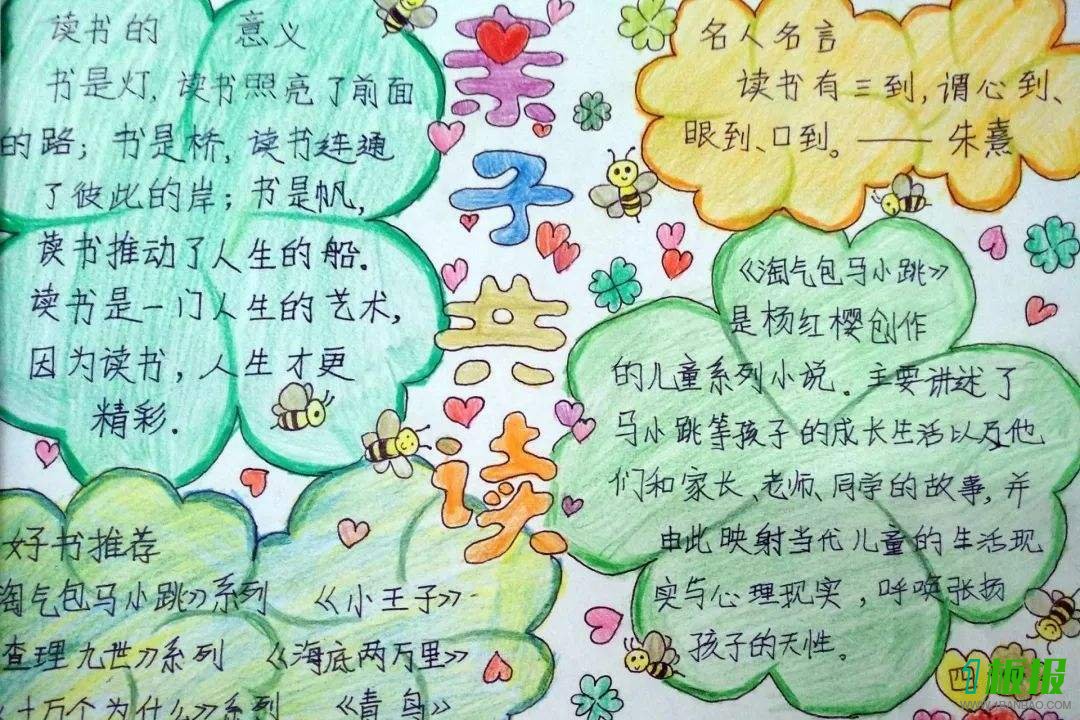 读书的 意义
书是灯,读书照亮了前面
的路;书是桥,读书连通
了彼此的岸;书是帆,
读书推动了人生的船.
读书是一门人生的艺术,
因为读书,人生才更
精彩.
亲子共读
名人名言
读书有三到,谓心到、
眼到、口到。——朱熹
《淘气包马小跳》
是杨红樱创作
的儿童系列小说。主要讲述了
马小跳等孩子的成长生活以及他
们和家长、老师、同学的故事,并
由此映射当代儿童的生活现
实与心理现实,呼唤张扬
孩子的天性。
好书推荐
淘气包马小跳》系列 《小王子》
查理九世》系列 《海底两万里》
十万个为什么》系列 《青鸟》
四
1板报
WWW.1BANBAO.COM